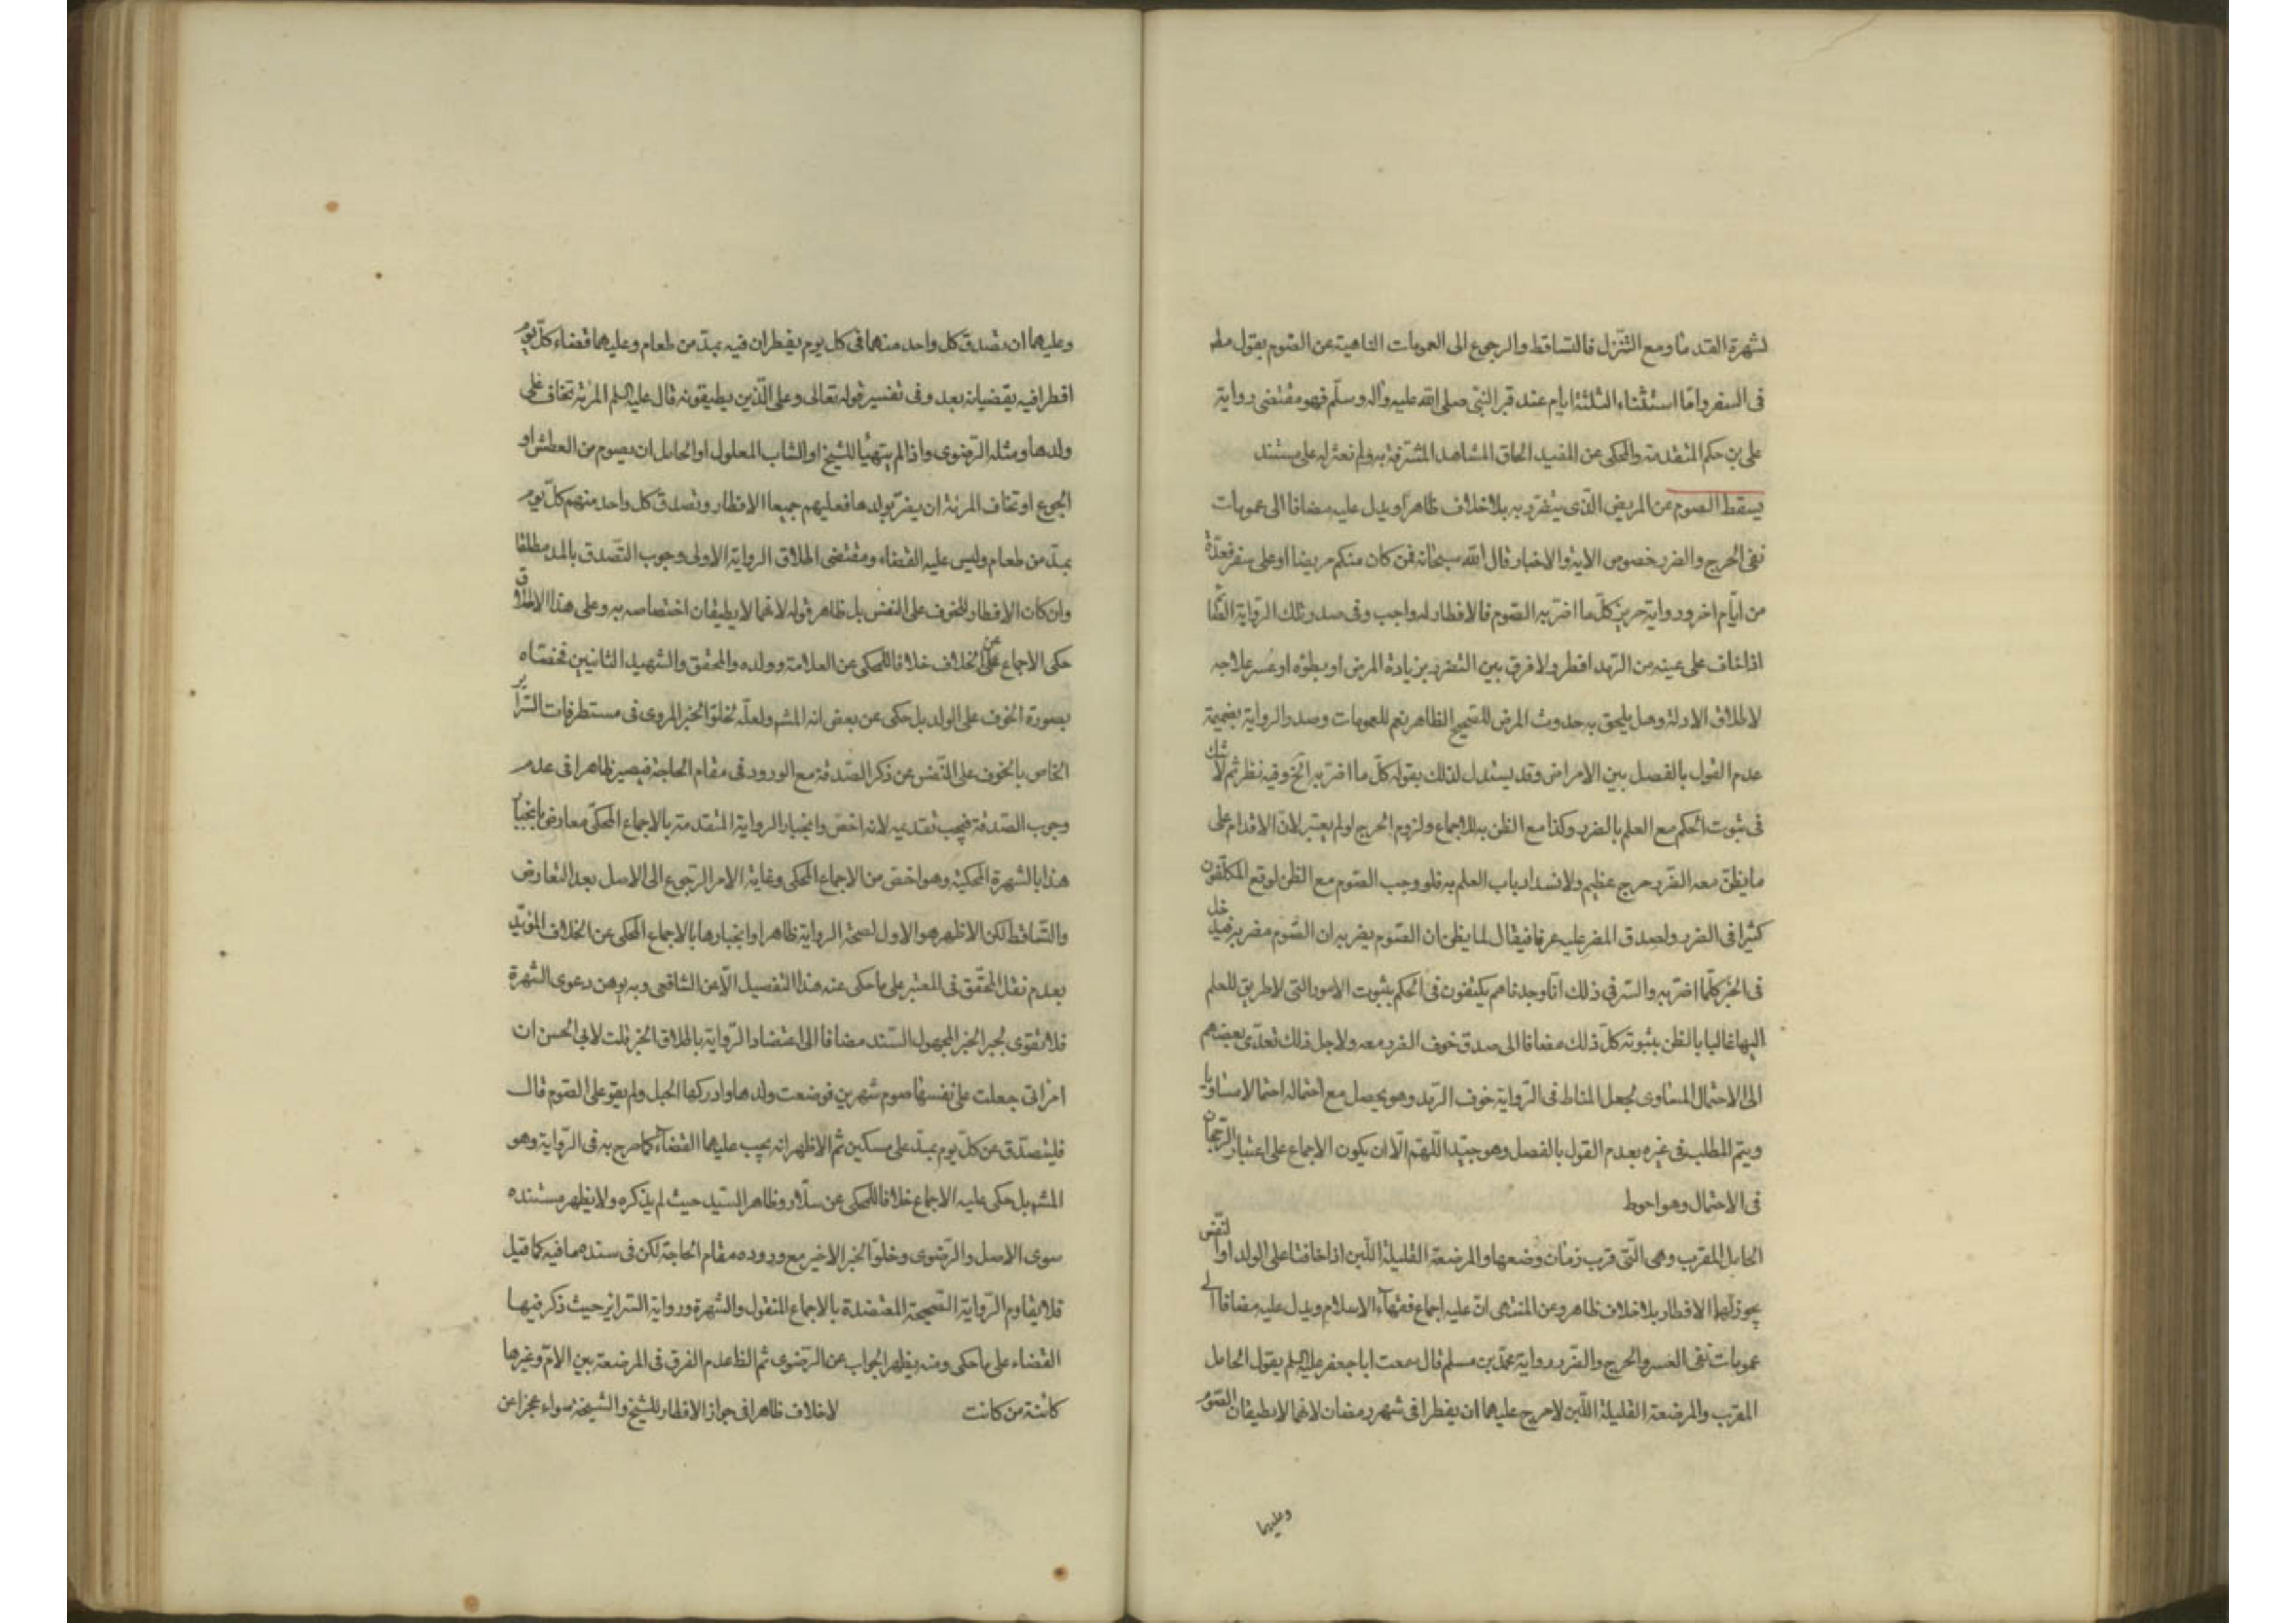 لشهرة القدماء ومع التنزل فالتساقط والرجوع الى العمومات الناهية عن الصوم بقول مط
فى السفر وامّا استثناء الثلثة ايام عند قبر النبى صلى الله عليه وآله وسلّم فهو مقتضى رواية
على بن حكم المتقدمة والمحكى عن المفيد الحاق المشاهد المشرّفة به ولم نعثر له على مستند
يسقط الصوم عن المريض الّذى يتضرّر به بلا خلاف ظاهرا ويدل عليه مضافا الى عمومات
نفى الحرج والضرر خصوص الاية والاخبار قال الله سبحانه فمن كان منكم مريضا او على سفر فعدّة
من ايّام اخر ورواية حريز كلّ ما اضرّ به الصّوم فالافطار له واجب وفى صدر تلك الرّواية الصّائم
اذا خاف على عينيه من الرّمد افطر ولا فرق بين التضرر بزيادة المرض او بطؤه او عسر علاجه
لاطلاق الادلة وهل يلحق به حدوث المرض للصّحيح الظاهر نعم للعمومات وصدر الرواية بضميمة
عدم القول بالفصل بين الامراض وقد يستدل لذلك بقوله كلّ ما اضرّ به الخ وفيه نظر ثم لا شك
فى ثبوت الحكم مع العلم بالضرر وكذا مع الظن به للاجماع ولزوم الحرج لو لم يعتبر لانّ الاقدام على
ما يظنّ معه الضّرر حرج عظيم ولانسداد باب العلم به فلو وجب الصّوم مع الظن لوقع المكلّفون
كثيرا فى الضرر ولصدق المضر عليه عرفا فيقال لما يظن ان الصّوم يضر به ان الصّوم مضر به فيدخل
فى الخبر كلّما اضرّ به والسّر فى ذلك انّا وجدناهم يكتفون فى الحكم بثبوت الامور الّتى لا طريق للعلم
اليها غالبا بالظن بثبوته كلّ ذلك مضافا الى صدق خوف الضرر معه ولاجل ذلك تعدّى بعضهم
الى الاحتمال المساوى لجعل المناط فى الرّواية خوف الرّمد وهو يحصل مع احتماله احتمالا مساويا
ويتم المطلب فى غيره بعدم القول بالفصل وهو جيّد اللّهمّ الّا ان يكون الاجماع على اعتبار الرّجحان
فى الاحتمال وهو احوط
الحامل المقرب وهى الّتى قرب زمان وضعها والمرضعة القليلة اللّبن اذا خافتا على الولد او النّفس
يجوز لهما الافطار بلا خلاف ظاهر وعن المنتهى انّ عليه اجماع فقهاء الاسلام ويدل عليه مضافا الى
عمومات نفى العسر والحرج والضّرر رواية محمّد بن مسلم قال سمعت ابا جعفر عليه السلم يقول الحامل
المقرب والمرضعة القليلة اللّبن لا حرج عليهما ان يفطرا فى شهر رمضان لانهما لا يطيقان الصّوم
وعليهما
وعليهما ان يتصدّق كل واحد منهما فى كل يوم يفطران فيه بمدّ من طعام وعليهما قضاء كلّ يوم
افطرا فيه يقضيانه بعد وفى تفسير قوله تعالى وعلى الّذين يطيقونه قال عليه السلم المرئة تخاف على
ولدها ومثله الرّضوى واذا لم يتهيّأ للشيخ او الشاب المعلول او الحامل ان يصوم من العطش او
الجوع او تخاف المرئة ان يضرّ بولدها فعليهم جميعا الافطار وتصدق كل واحد منهم كلّ يوم
بمدّ من طعام وليس عليه القضاء ومقتضى اطلاق الرواية الاولى وجوب التّصدق بالمد مطلقا
وان كان الافطار للخوف على النفس بل ظاهر قوله لانهما لا يطيقان اختصاصه به وعلى هذا الاطلاق
حكى الاجماع عن الخلاف خلافا للمحكى عن العلامة وولده والمحقق والشهيد الثانيين فخصّاه
بصورة الخوف على الولد بل حكى عن بعض انه المشهـ ولعلّه لخلوّ الخبر المروى فى مستطرفات السّرائر
الخاص بالخوف على النّفس عن ذكر الصّدقة مع الورود فى مقام الحاجة فيصير ظاهرا فى عدم
وجوب الصّدقة فيجب تقديمه لانه اخصّ وانجبار الرواية المتقدمة بالاجماع المحكى معارض بانجبار
هذا بالشهرة المحكية وهو اخصّ من الاجماع المحكى وغاية الامر الرّجوع الى الاصل بعد التعارض
والتّساقط لكن الاظهر هو الاول لصحّة الرواية ظاهرا وانجبارها بالاجماع المحكى عن الخلاف المؤيّد
بعدم نقل المحقّق فى المعتبر على ما حكى عنه هذا التفصيل الّا عن الشافعى وبه يوهن دعوى الشهرة
فلا تقوى لجبر الخبر المجهول السّند مضافا الى اعتضاد الرّواية باطلاق الخبر قلت لابى الحسن ان
امرأتى جعلت على نفسها صوم شهرين فوضعت ولدها وادركها الحبل ولم يقو على الصّوم قال
فليتصدّق عن كلّ يوم بمدّ على مسكين ثم الاظهر انه يجب عليهما القضاء كما صرح به فى الرّواية وهو
المشهـ بل حكى عليه الاجماع خلافا للمحكى عن سلّار وظاهر السّيد حيث لم يذكره ولا يظهر مستنده
سوى الاصل والرّضوى وخلوّ الخبر الاخير مع وروده مقام الحاجة لكن فى سندهما فيه كما قيل
فلا يقاوم الرّواية الصّحيحة المعتضدة بالاجماع المنقول والشهرة ورواية السّرائر حيث ذكر فيها
القضاء على ما حكى ومنه يظهر الجواب عن الرّضوى ثم الظ عدم الفرق فى المرضعة بين الامّ وغيرها
كائنة من كانت لا خلاف ظاهرا فى جواز الافطار للشيخ والشيخة سواء عجزا عن